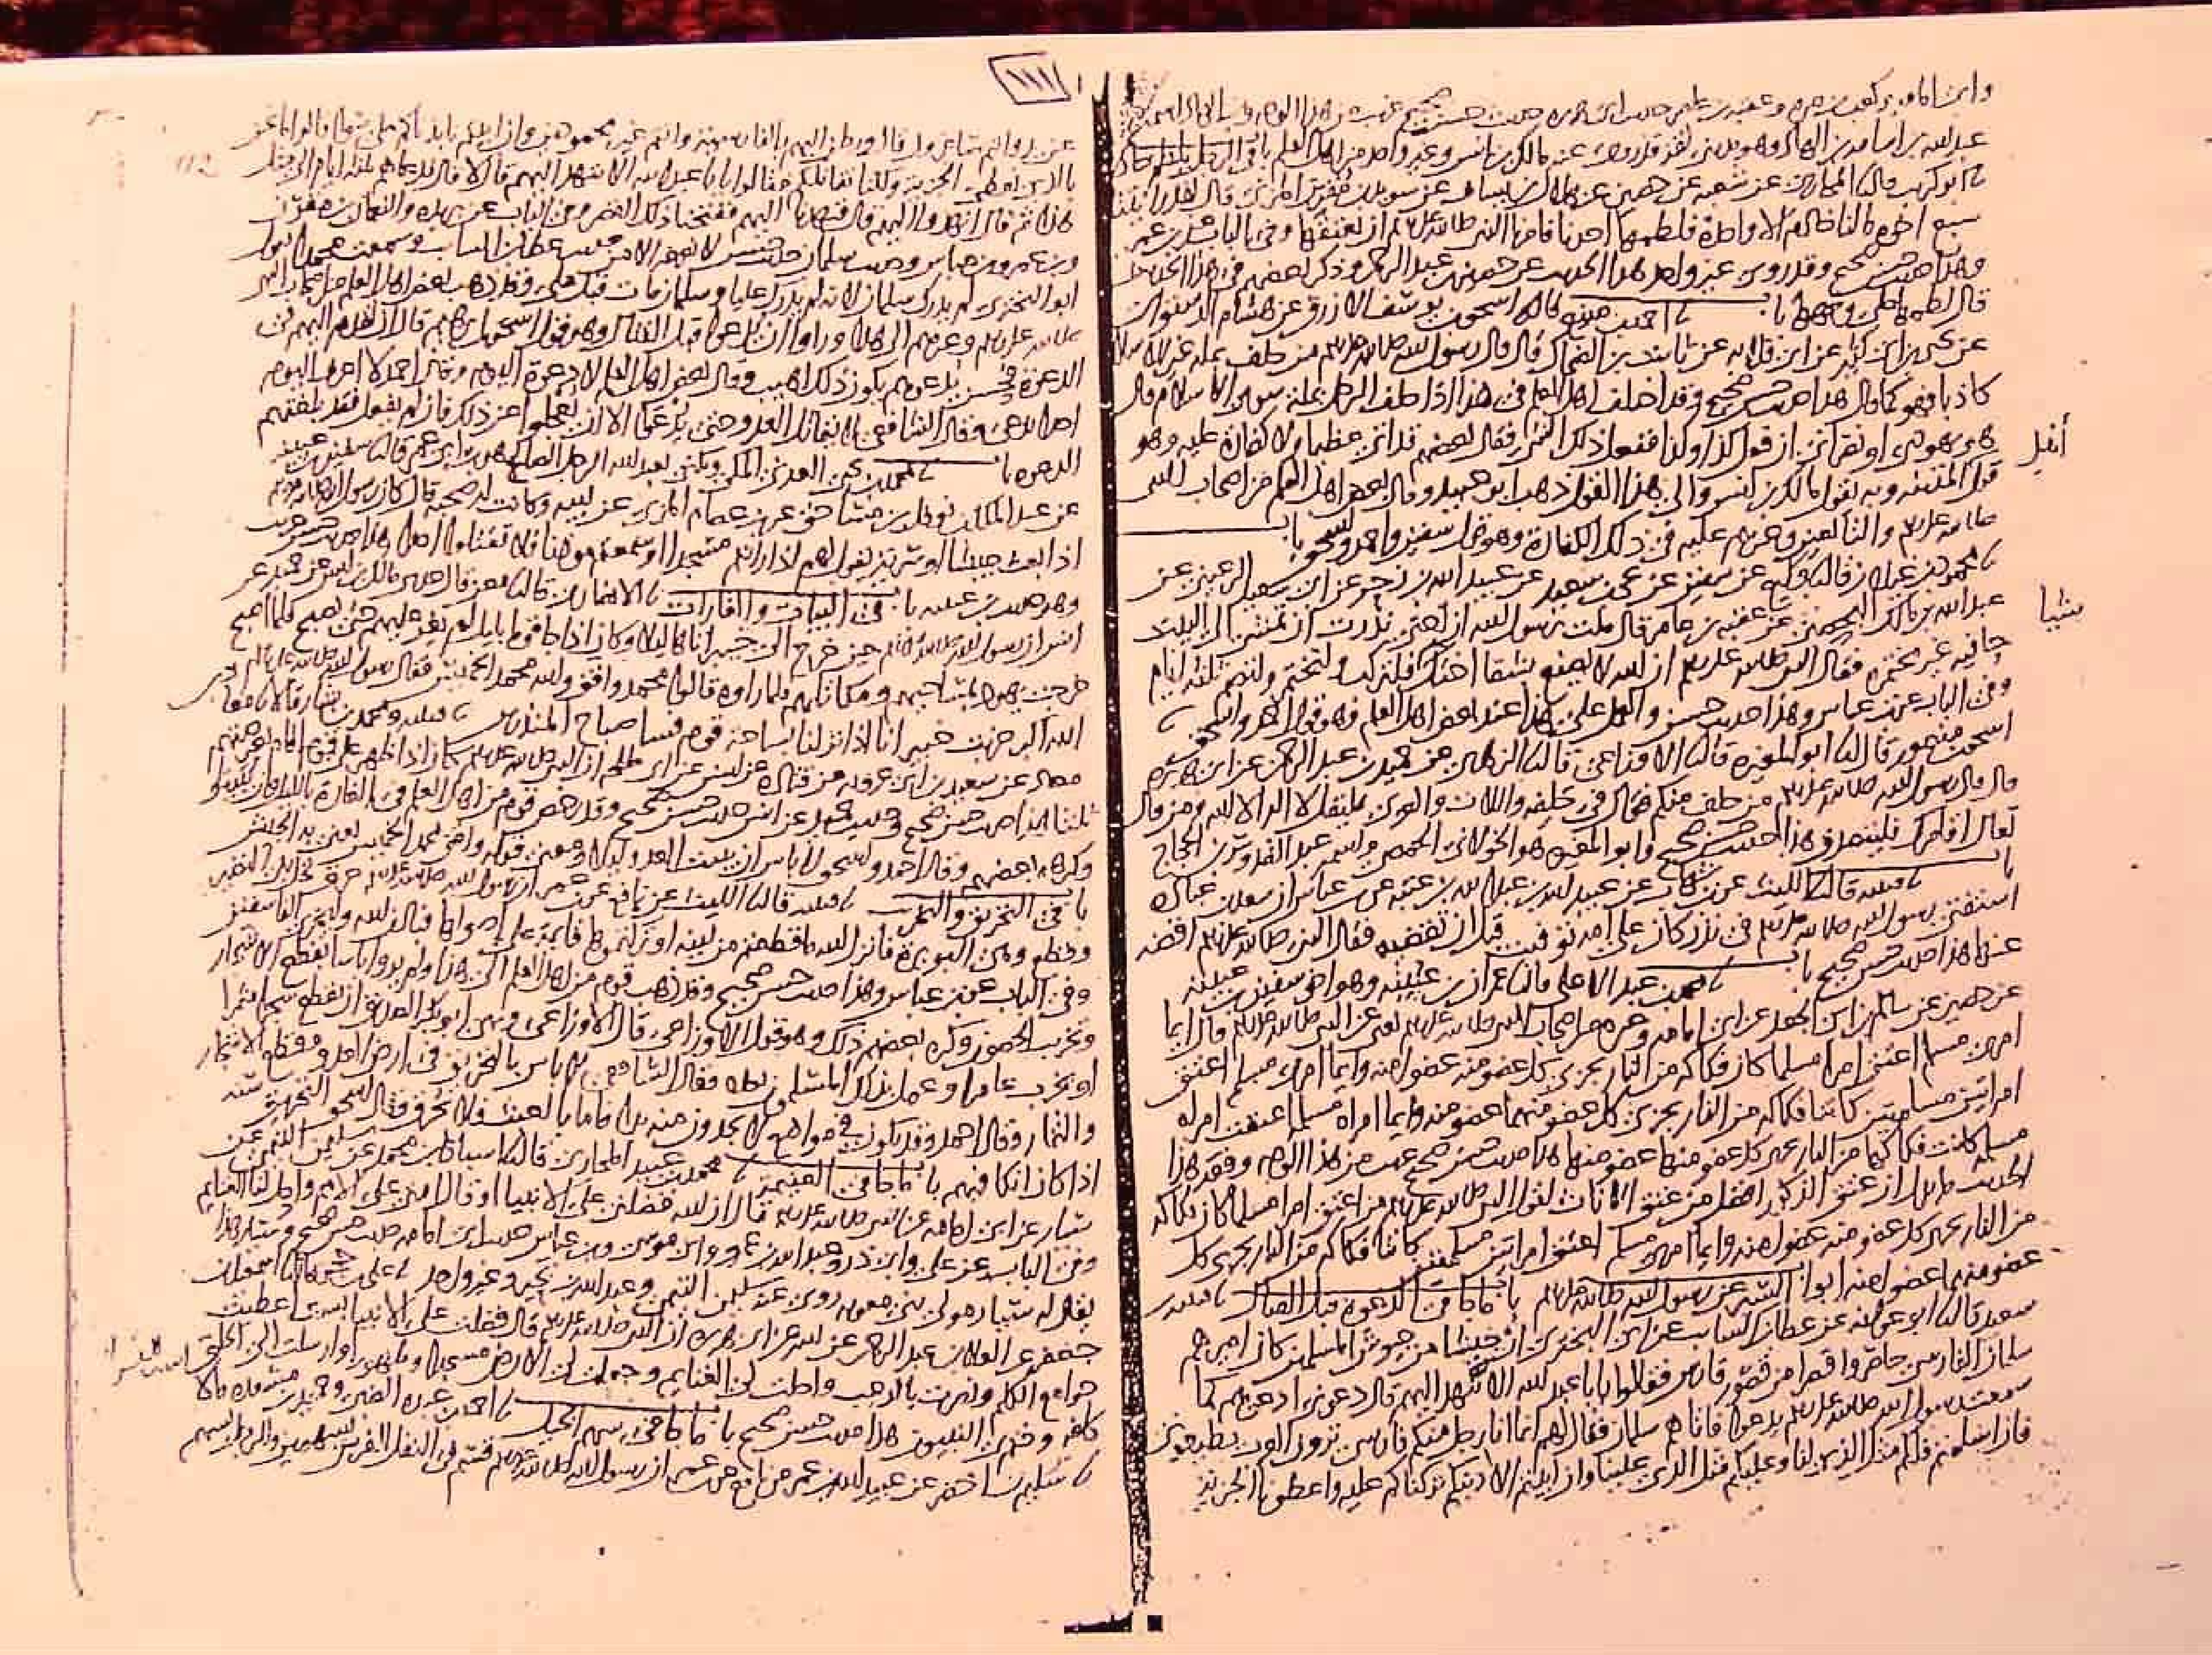 عبد الله بن اسامه بن الهاد وهو مدني ثقه قد روى عنه مالك بن انس وغير واحد من اهل العلم باب في الرجل يلطم خادمه
نا ابو كريب قال نا المحاربي عن شعبه عن حصين عن هلال بن يساف عن سويد بن مقرن المزني قال لقد رايتنا
سبع اخوه ما لنا خادم الا واحدة فلطمها احدنا فامرنا النبي صلى الله عليه وسلم ان نعتقها وفي الباب عن بن عمر
وهذا حديث حسن صحيح وقد روى غير واحد هذا الحديث عن حصين بن عبد الرحمن وذكر بعضهم في هذا الحديث
قال لطمها على وجهها باب نا احمد بن منيع قال نا اسحق بن يوسف الازرق عن هشام الدستوائي
عن يحيى بن ابي كثير عن ابي قلابه عن ثابت بن الضحاك قال قال رسول الله صلى الله عليه وسلم من حلف بمله غير الاسلام
كاذبا فهو كما قال هذا حديث حسن صحيح وقد اختلف اهل العلم في هذا اذا حلف الرجل بمله سوى الاسلام قال
هو يهودي او نصراني ان فعل كذا وكذا ففعل ذلك الشي فقال بعضهم قد اتى عظيما ولا كفارة عليه وهو
قول اهل المدينه وبه يقول مالك بن انس والى هذا القول ذهب ابو عبيد وقال بعض اهل العلم من اصحاب النبي
صلى الله عليه وسلم والتابعين وغيرهم عليه في ذلك الكفارة وهو قول سفين واحمد واسحق باب
نا محمود بن غيلان قال نا وكيع عن سفين عن يحيى بن سعيد عن عبيد الله بن زحر عن ابي سعيد الرعيني عن
عبد الله بن مالك اليحصبي عن عقبه بن عامر قال قلت يرسول الله ان اختي نذرت ان تمشي الى البيت
حافيه غير مختمره فقال النبي صلى الله عليه وسلم ان الله لا يصنع بشقا اختك فلتركب ولتختمر ولتصم ثلثه ايام
وفي الباب عن بن عباس وهذا حديث حسن والعمل على هذا عند بعض اهل العلم وهو قول احمد واسحق نا
اسحق بن منصور قال نا ابو المغيره قال نا الاوزاعي قال نا الزهري عن حميد بن عبد الرحمن عن ابي هريره
قال قال رسول الله صلى الله عليه وسلم من حلف منكم فقال في حلفه واللات والعزى فليقل لا اله الا الله ومن قال
تعال اقامرك فليتصدق هذا حديث حسن صحيح وابو المغيره هو الخولاني الحمصي واسمه عبد القدوس بن الحجاج
باب نا قتيبه قال نا الليث عن بن شهاب عن عبيد الله بن عبد الله بن عتبه عن بن عباس ان سعد بن عباده
استفتى رسول الله صلى الله عليه وسلم في نذر كان على امه توفيت قبل ان تقضيه فقال النبي صلى الله عليه وسلم اقضه
عنها هذا حديث حسن صحيح باب نا محمد بن عبد الاعلى قال نا عمران بن عيينه وهو اخو سفين بن عيينه
عن حصين عن سالم بن ابي الجعد عن ابي امامه وغيره من اصحاب النبي صلى الله عليه وسلم عن النبي صلى الله عليه وسلم قال ايما
امرى مسلم اعتق امرا مسلما كان فكاكه من النار يجزي كل عضو منه عضوا منه وايما امرى مسلم اعتق
امراتين مسلمتين كانتا فكاكه من النار يجزي كل عضو منهما عضو منه وايما امراه مسلمه اعتقت امراه
مسلمه كانت فكاكها من النار يجزي كل عضو منها عضو منها هذا حديث حسن صحيح غريب من هذا الوجه وفقه هذا
الحديث ما يدل ان عتق الذكور افضل من عتق الاناث لقول النبي صلى الله عليه وسلم من اعتق امرا مسلما كان فكاكه
من النار يجزي كل عضو منه عضوا منه وايما امرى مسلم اعتق امراتين مسلمتين كانتا فكاكه من النار يجزي كل
عضو منهما عضوا منه ابواب السير عن رسول الله صلى الله عليه وسلم باب ما جا في الدعوه قبل القتال نا قتيبه بن
سعيد قال نا ابو عوانه عن عطا بن السايب عن ابي البختري ان جيشا من جيوش المسلمين كان اميرهم
سلمان الفارسي حاصروا قصرا من قصور فارس فقالوا يابا عبد الله الا ننهد اليهم قال دعوني ادعوهم كما
سمعت رسول الله صلى الله عليه وسلم يدعوا فاتاهم سلمان فقال لهم انما انا رجل منكم فارسي ترون العرب يطيعونني
فان اسلمتم فلكم مثل الذي لنا وعليكم مثل الذي علينا وان ابيتم الا دينكم تركناكم عليه واعطونا الجزيه
أفعل
شيا
١١١
عن يد وانتم صاغرون قال ورطن اليهم بالفارسيه وانتم غير محمودين وان ابيتم نابذناكم على سوا قالوا ما نحن
بالذي نعطي الجزيه ولكنا نقاتلكم فقالوا يابا عبد الله الا ننهد اليهم قال لا قال فدعاهم ثلثه ايام الى مثل
هذا ثم قال انهدوا اليهم قال فنهدنا اليهم ففتحنا ذلك القصر وفي الباب عن بريده والنعمان بن مقرن
وبن عمر وبن عباس وحديث سلمان حديث حسن لا نعرفه الا من حديث عطا بن السايب وسمعت محمدا يقول
ابو البختري لم يدرك سلمان لانه لم يدرك عليا وسلمان مات قبل علي وقد ذهب بعض اهل العلم من اصحاب النبي
صلى الله عليه وسلم وغيرهم الى هذا وراوا ان يدعوا قبل القتال وهو قول اسحق بن ابرهيم قال ان تقدم اليهم في
الدعوة فحسن يدعوهم يكون ذلك اهيب وقال بعض اهل العلم لا دعوة اليوم وقال احمد لا اعرف اليوم
احدا يدعى وقال الشافعي لا يقاتل العدو حتى يدعوا الا ان يعجلوا عن ذلك فان لم يفعل فقد بلغتهم
الدعوه باب نا محمد بن يحيى العدني المكي ويكنى بعبد الله الرجل الصالح هو بن ابي عمر قال نا سفين بن عيينه
عن عبد الملك بن نوفل بن مساحق عن بن عصام المزني عن ابيه وكانت له صحبه قال كان رسول الله صلى الله عليه وسلم
اذا بعث جيشا او سريه يقول لهم اذا رايتم مسجدا او سمعتم موذنا فلا تقتلوا احدا هذا حديث حسن غريب
وهو حديث بن عيينه باب في البيات والغارات نا الانصاري قال نا معن قال حدثني مالك بن انس عن حميد عن
انس ان رسول الله صلى الله عليه وسلم حين خرج الى خيبر اتاها ليلا وكان اذا جا قوما بليل لم يغر عليهم حتى يصبح فلما اصبح
خرجت يهود بمساحيهم ومكاتلهم فلما راوه قالوا محمد وافق والله محمد الخميس فقال رسول الله صلى الله عليه وسلم
الله اكبر خربت خيبر انا اذا نزلنا بساحة قوم فسا صباح المنذرين نا قتيبه ومحمد بن بشار قالا نا معاذ
بن معاذ عن سعيد بن ابي عروبه عن قتاده عن انس عن ابي طلحه ان النبي صلى الله عليه وسلم كان اذا ظهر على قوم اقام بعرصتهم
ثلثا هذا حديث حسن صحيح وحديث حميد عن انس حديث حسن صحيح وقد رخص قوم من اهل العلم في الغارة بالليل وان يبيتوا
وكرهه بعضهم وقال احمد واسحق لا باس ان يبيت العدو ليلا ومعنى قوله وافق محمد الخميس يعني به الجيش
باب في التحريق والتخريب نا قتيبه قال نا الليث عن نافع عن بن عمر ان رسول الله صلى الله عليه وسلم حرق نخل بني النضير
وقطع وهي البويرة فانزل الله ما قطعتم من لينه او تركتموها قايمة على اصولها فباذن الله وليخزي الفاسقين
وفي الباب عن بن عباس وهذا حديث حسن صحيح وقد ذهب قوم من اهل العلم الى هذا ولم يروا باسا بقطع الاشجار
وتخريب الحصون وكره بعضهم ذلك وهو قول الاوزاعي قال الاوزاعي ونهى ابو بكر الصديق ان يقطع شجرا مثمرا
او يخرب عامرا وعمل بذلك المسلمون بعده وقال الشافعي لا باس بالتحريق في ارض العدو وقطع الاشجار
والثمار وقال احمد وقد يكون في مواضع لا يجدون منه بدا فاما بالعبث فلا تحرق وقال اسحق التحريق سنه
اذا كان انكا فيهم باب ما جا في الغنيمة نا محمد بن عبيد المحاربي قال نا اسباط بن محمد عن سليمن التيمي عن
سيار عن ابي امامه عن النبي صلى الله عليه وسلم قال ان الله فضلني على الانبيا او قال امتي على الامم واحل لنا الغنايم
وفي الباب عن علي وابي ذر وعبد الله بن عمرو وابي موسى وبن عباس حديث ابي امامه حديث حسن صحيح وسيار هذا
يقال له سيار مولى بني معويه روى عنه سليمن التيمي وعبد الله بن بحير وغير واحد نا علي بن حجر قال نا اسمعيل بن
جعفر عن العلا بن عبد الرحمن عن ابيه عن ابي هريره ان النبي صلى الله عليه وسلم قال فضلت على الانبيا بست اعطيت
جوامع الكلم ونصرت بالرعب واحلت لي الغنايم وجعلت لي الارض مسجدا وطهورا وارسلت الى الخلق
كافه وختم بي النبيون هذا حديث حسن صحيح باب ما جا في سهم الخيل نا احمد بن عبده الضبي وحميد بن مسعده قالا
نا سليم بن اخضر عن عبيد الله بن عمر عن نافع عن بن عمر ان رسول الله صلى الله عليه وسلم قسم في النفل للفرس بسهمين وللرجل بسهم